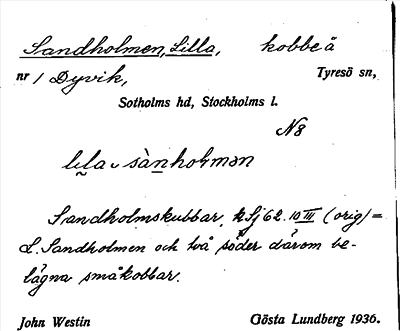 Sandholmen, Lilla, kobbe å
nr 1 Dyvik, Tyresö sn,
Sotholms hd, Stockholms l.
N8
lila sànholmən
Sandholmskubbar, kSj 62.10 III (orig) =
L. Sandholmen och två söder därom be-
lägna småkobbar.
John Westin Gösta Lundberg 1936.